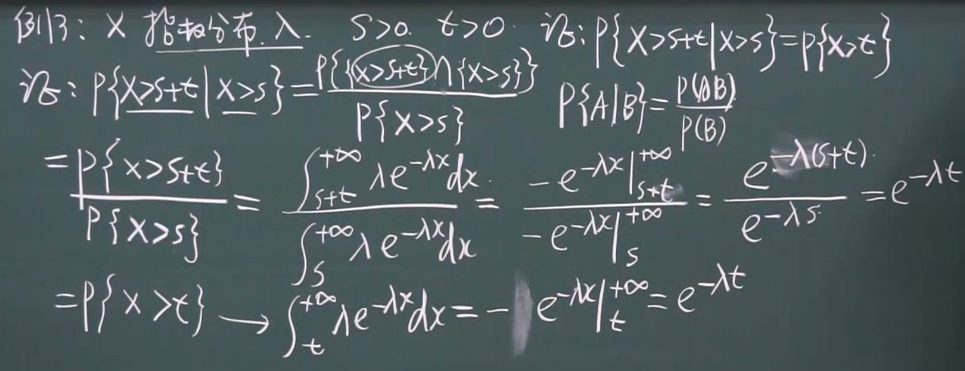 例13: X 指数分布 λ. S>0. t>0. 证: P{X>S+t|X>S}=P{X>t}
证: P{X>S+t|X>S}=P{{X>S+t}∩{X>S}}/P{X>S} P{A|B}=P(AB)/P(B)
=P{X>S+t}/P{X>S}=∫_{S+t}^{+∞}λe^{-λx}dx/∫_{S}^{+∞}λe^{-λx}dx=-e^{-λx}|_{S+t}^{+∞}/-e^{-λx}|_{S}^{+∞}=e^{-λ(S+t)}/e^{-λS}=e^{-λt}
=P{X>t}→∫_{t}^{+∞}λe^{-λx}dx=-e^{-λx}|_{t}^{+∞}=e^{-λt}